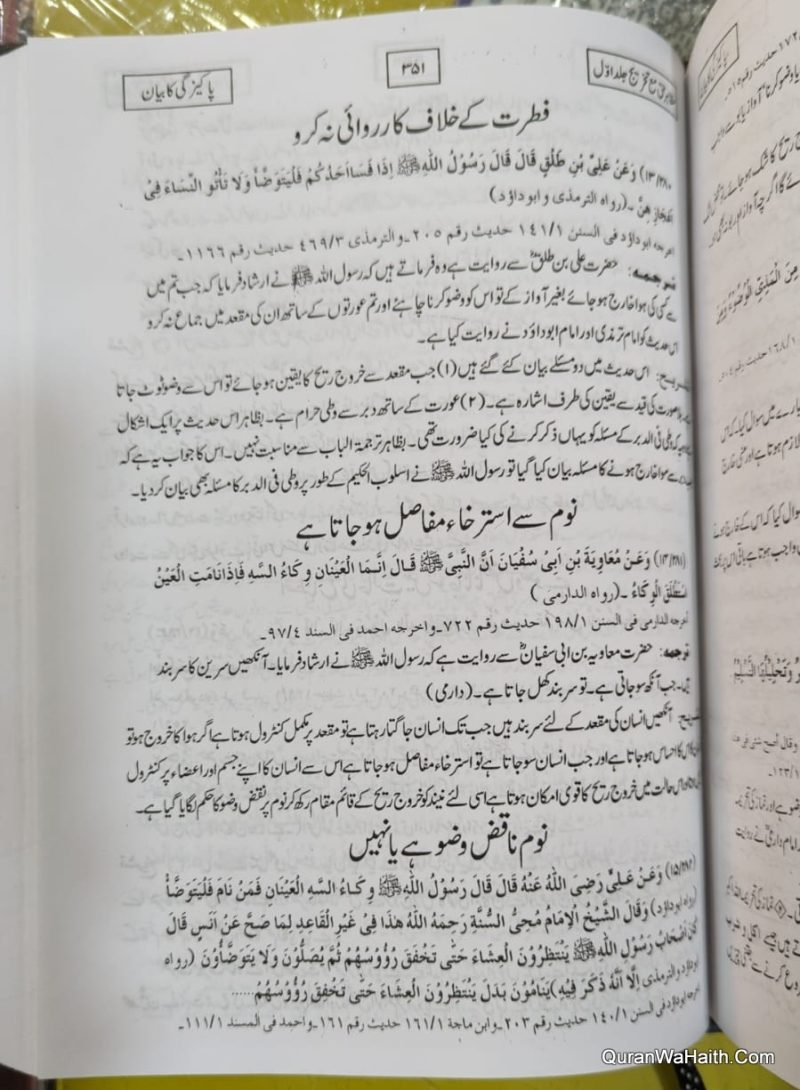 پاکیزگی کا بیان
۳۵۱
مظاہر حق مع تخریج جلد اوّل
فطرت کے خلاف کارروائی نہ کرو
(۱۳/۲۸۰) وَعَنْ عَلِیِّ بْنِ طَلْقٍ قَالَ قَالَ رَسُوْلُ اللّٰهِ ﷺ اِذَا فَسَا اَحَدُکُمْ فَلْیَتَوَضَّأْ وَلَا تَأْتُو النِّسَاءَ فِیْ
اَعْجَازِ هِنَّ ۔(رواه الترمذی و ابو داؤد)
اخرجه ابو داؤد فی السنن ۱۴۱/۱ حدیث رقم ۲۰۵۔ والترمذی ۴۶۹/۳ حدیث رقم ۱۱۶۶۔
ترجمہ: حضرت علی بن طلقؓ سے روایت ہے وہ فرماتے ہیں کہ رسول اللہ ﷺ نے ارشاد فرمایا کہ جب تم میں
سے کسی کی ہوا خارج ہو جائے بغیر آواز کے تو اس کو وضو کرنا چاہئے اور تم عورتوں کے ساتھ ان کی مقعد میں جماع نہ کرو
اس حدیث کو امام ترمذی اور امام ابوداؤد نے روایت کیا ہے۔
تشریح: اس حدیث میں دو مسئلے بیان کئے گئے ہیں (۱) جب مقعد سے خروج ریح کا یقین ہو جائے تو اس سے وضو ٹوٹ جاتا
صورت کی قید سے یقین کی طرف اشارہ ہے۔ (۲) عورت کے ساتھ دبر سے وطی حرام ہے۔ بظاہر اس حدیث پر ایک اشکال
کہ وطی فی الدبر کے مسئلہ کو یہاں ذکر کرنے کی کیا ضرورت تھی۔ بظاہر ترجمۃ الباب سے مناسبت نہیں۔ اس کا جواب یہ ہے کہ
سے ہوا خارج ہونے کا مسئلہ بیان کیا گیا تو رسول اللہ ﷺ نے اسلوب الحکیم کے طور پر وطی فی الدبر کا مسئلہ بھی بیان کر دیا۔
نوم سے استرخاء مفاصل ہو جاتا ہے
(۱۴/۲۸۱) وَعَنْ مُعَاوِیَةَ بْنِ اَبِیْ سُفْیَانَ اَنَّ النَّبِیَّ ﷺ قَالَ اِنَّمَا الْعَیْنَانِ وِکَاءُ السَّهِ فَاِذَا نَامَتِ الْعَیْنُ
اسْتَطْلَقَ الْوِکَاءُ ۔(رواه الدارمی )
اخرجه الدارمی فی السنن ۱۹۸/۱ حدیث رقم ۷۲۲۔ واخرجه احمد فی السند ۹۷/۴۔
ترجمہ: حضرت معاویہ بن ابی سفیانؓ سے روایت ہے کہ رسول اللہ ﷺ نے ارشاد فرمایا۔ آنکھیں سرین کا سربند
ہیں۔ جب آنکھ سو جاتی ہے۔ تو سربند کھل جاتا ہے۔ (دارمی)
تشریح: آنکھیں انسان کی مقعد کے لئے سربند ہیں جب تک انسان جاگتا رہتا ہے تو مقعد پر مکمل کنٹرول ہوتا ہے اگر ہوا کا خروج ہو تو
اس کا احساس ہوتا ہے اور جب انسان سو جاتا ہے تو استرخاء مفاصل ہو جاتا ہے اس سے انسان کا اپنے جسم اور اعضاء پر کنٹرول
اس حالت میں خروج ریح کا قوی امکان ہوتا ہے اسی لئے نیند کو خروج ریح کے قائم مقام رکھ کر نوم پر نقض وضو کا حکم لگایا گیا ہے۔
نوم ناقض وضو ہے یا نہیں
(۱۵/۲۸۲) وَعَنْ عَلِیٍّ رَضِیَ اللّٰهُ عَنْهُ قَالَ قَالَ رَسُوْلُ اللّٰهِ ﷺ وِکَاءُ السَّهِ الْعَیْنَانِ فَمَنْ نَامَ فَلْیَتَوَضَّأْ
(رواه ابو داؤد) وَقَالَ الشَّیْخُ الْاِمَامُ مُحِیُّ السُّنَّةِ رَحِمَهُ اللّٰهُ هٰذَا فِیْ غَیْرِ الْقَاعِدِ لِمَا صَحَّ عَنْ اَنَسٍ قَالَ
کَانَ اَصْحَابُ رَسُوْلِ اللّٰهِ ﷺ یَنْتَظِرُوْنَ الْعِشَاءَ حَتّٰی تَخْفَقَ رُؤُوْسُهُمْ ثُمَّ یُصَلُّوْنَ وَلَا یَتَوَضَّأُوْنَ (رواه
ابوداؤد والترمذی اِلَّا اَنَّهُ ذَکَرَ فِیْهِ) یَنَامُوْنَ بَدَلَ یَنْتَظِرُوْنَ الْعِشَاءَ حَتّٰی تَخْفِقَ رُؤُوْسُهُمْ......
اخرجه ابو داؤد فی السنن ۱۴۰/۱ حدیث رقم ۲۰۳۔ وابن ماجة ۱۶۱/۱ حدیث رقم ۱۶۱۔ واحمد فی المسند ۱۱۱/۱۔
QuranWaHaith.Com